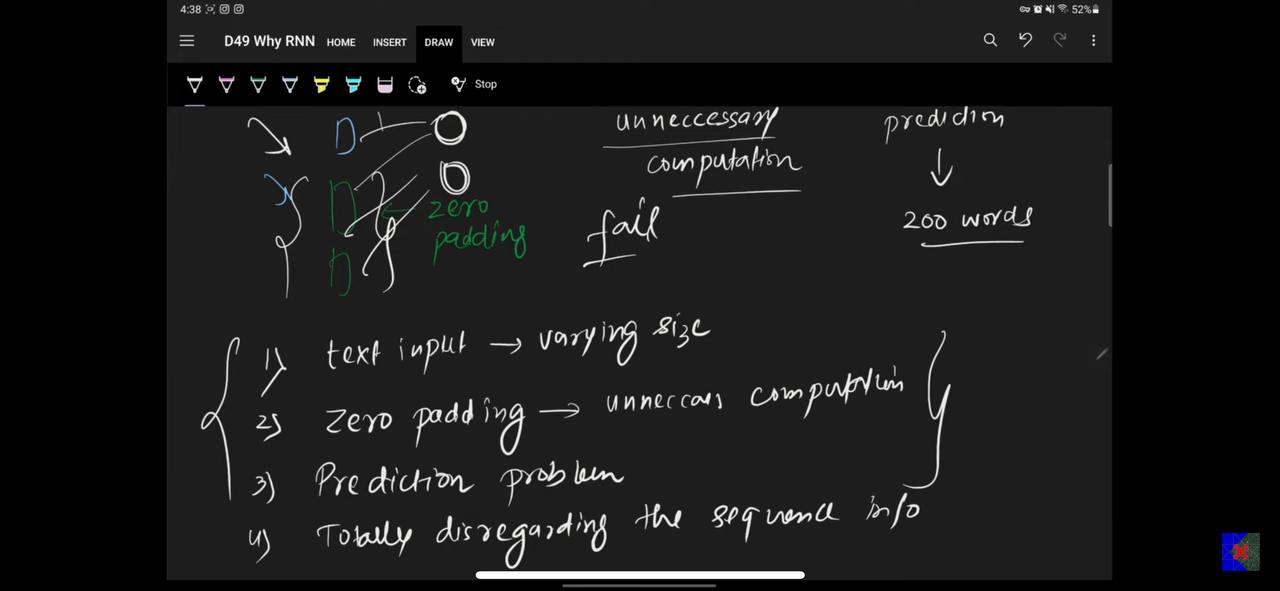 4:38
52%
D49 Why RNN HOME INSERT DRAW VIEW
Stop
D
unneccessary
computation
prediction
zero
padding
fail
200 words
1) text input → varying size
2) zero padding → unneccars computation
3) Prediction problem
4) Totally disregarding the sequence info